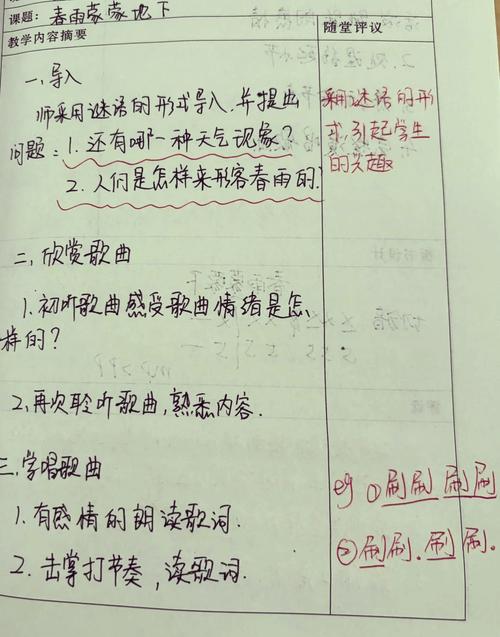 课题：春雨蒙蒙地下
教学内容摘要
随堂评议
一、导入
师采用谜语的形式导入，并提出
问题：1. 还有哪一种天气现象？
2. 人们是怎样来形容春雨的？
采用谜语的形
式，引起学生
的兴趣
二、欣赏歌曲
1. 初听歌曲感受歌曲情绪是怎
样的？
2. 再次聆听歌曲，熟悉内容.
三、学唱歌曲
1. 有感情的朗读歌词.
2. 击掌打节奏，读歌词.
eg ①刷刷 刷刷
②刷刷. 刷刷.